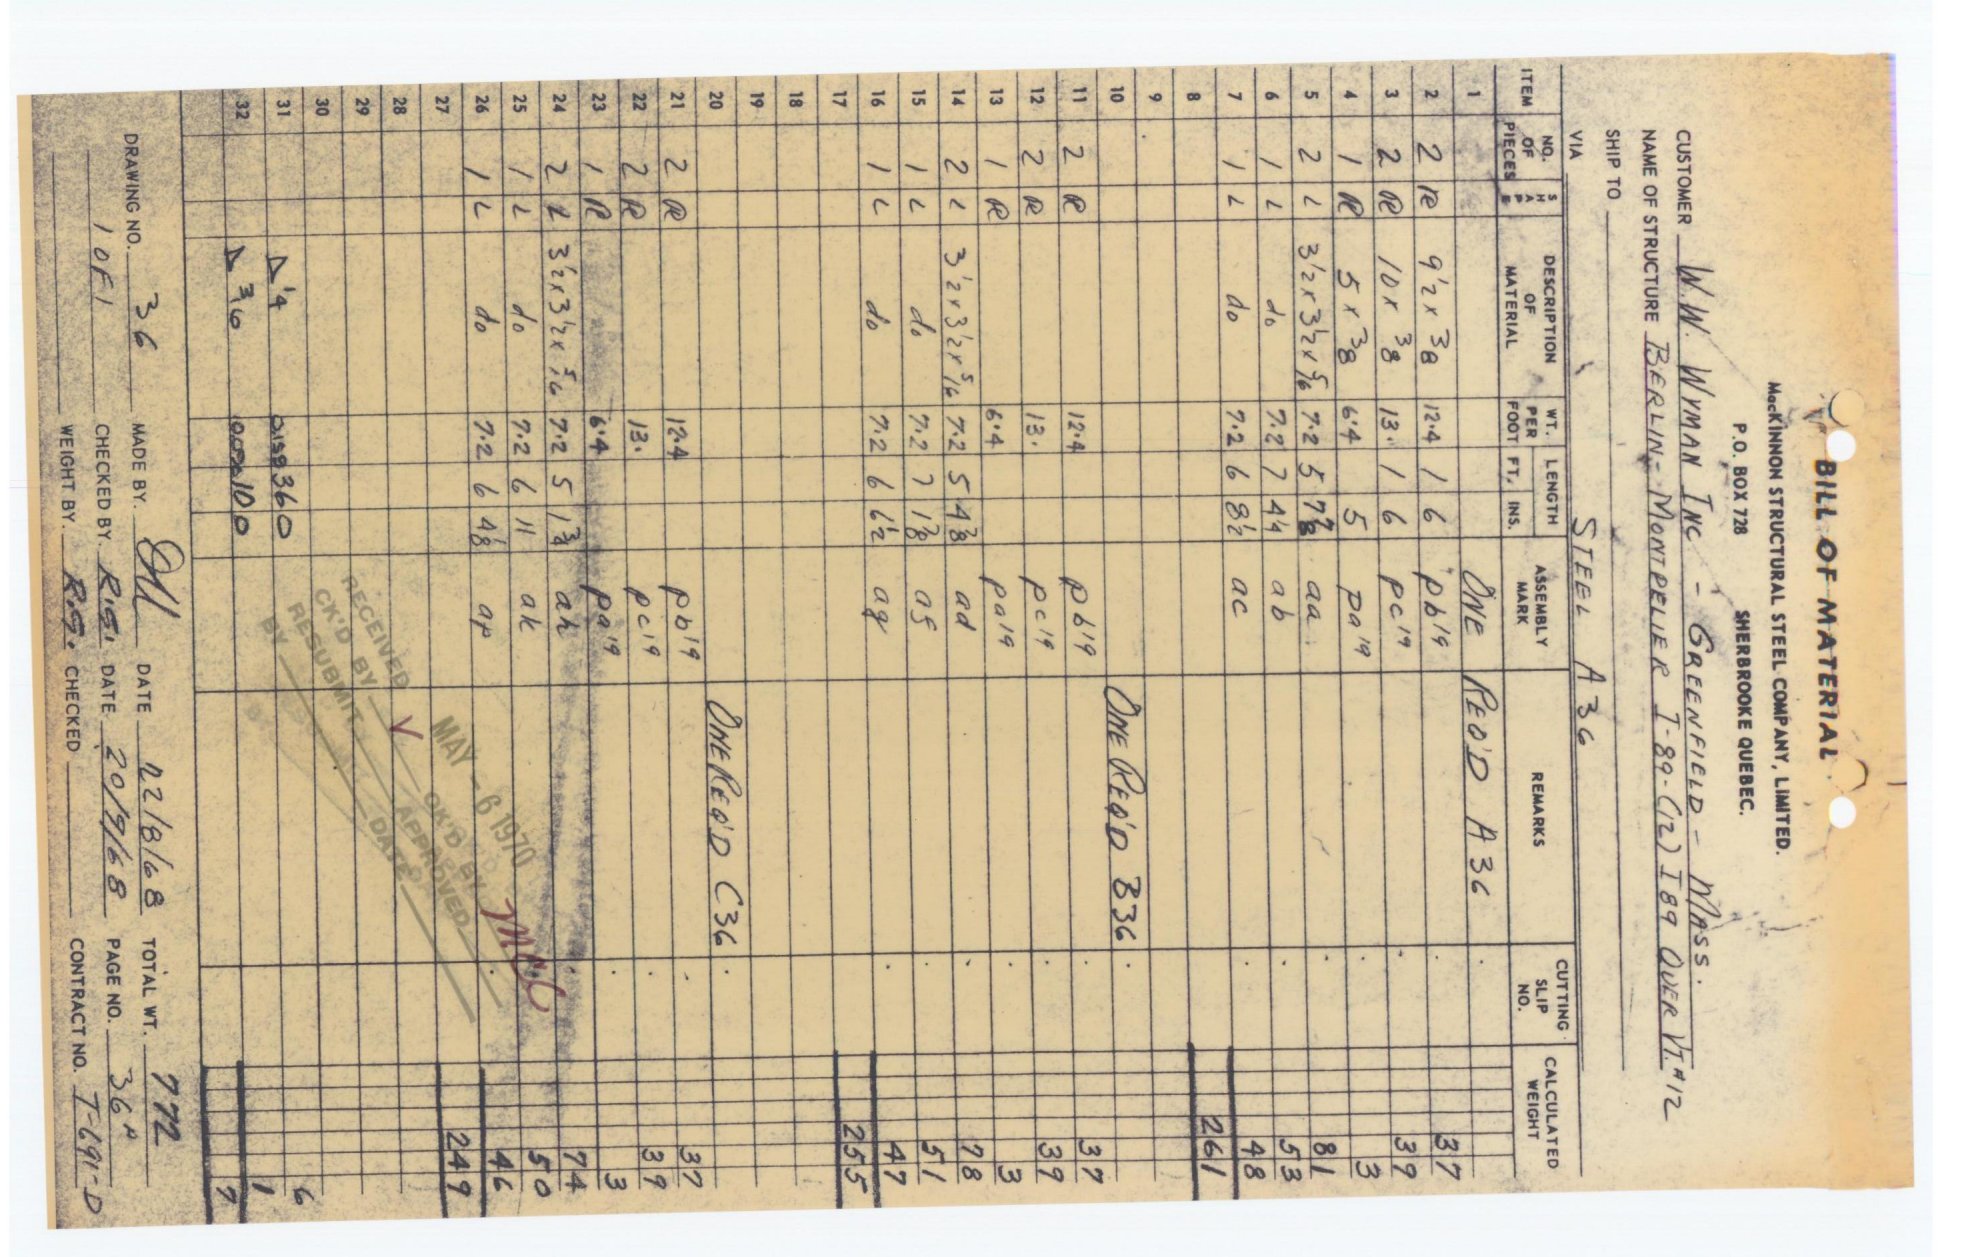 BILL OF MATERIAL
MacKINNON STRUCTURAL STEEL COMPANY, LIMITED.
P.O. BOX 728 SHERBROOKE QUEBEC.
CUSTOMER W.W. WYMAN INC - GREENFIELD - MASS.
NAME OF STRUCTURE BERLIN - MONTPELIER I-89-(12) I89 OVER VT.#12
SHIP TO
VIA STEEL A36
ITEM NO. OF PIECES SHAPE DESCRIPTION OF MATERIAL WT. PER FOOT LENGTH FT. INS. ASSEMBLY MARK REMARKS CUTTING SLIP NO. CALCULATED WEIGHT
1 ONE REQ'D A36
2 2 PL 9 1/2 x 3/8 12.4 1 6 pb'19 37
3 2 PL 10 x 3/8 13. 1 6 pc'19 39
4 1 PL 5 x 3/8 6.4 5 pa'19 3
5 2 L 3 1/2 x 3 1/2 x 5/16 7.2 5 7 7/8 aa 81
6 1 L do 7.2 7 4 1/4 ab 53
7 1 L do 7.2 6 8 1/2 ac 48
8 261
9
10 ONE REQ'D B36
11 2 PL 12.4 pb'19 37
12 2 PL 13. pc'19 39
13 1 PL 6.4 pa'19 3
14 2 L 3 1/2 x 3 1/2 x 5/16 7.2 5 4 3/8 ad 78
15 1 L do 7.2 7 1 3/8 af 51
16 1 L do 7.2 6 6 1/2 ag 47
17 255
18
19
20 ONE REQ'D C36
21 2 PL 12.4 pb'19 37
22 2 PL 13. pc'19 39
23 1 PL 6.4 pa'19 3
24 2 L 3 1/2 x 3 1/2 x 5/16 7.2 5 1 3/4 ah 74
25 1 L do 7.2 6 11 ak 50
26 1 L do 7.2 6 4 1/8 ap 46
27 249
28
29
30
31 Δ 1/4 360 6
32 Δ 3/16 100 1
7
RECEIVED MAY -6 1970
CK'D BY OK'D BY
RESUBMIT APPROVED
BY DATE
DRAWING NO. 36 MADE BY. DATE 22/8/68 TOTAL WT. 772
1 OF 1 CHECKED BY. R.G. DATE 20/9/68 PAGE NO. 36A
WEIGHT BY. R.G. CHECKED CONTRACT NO. T-691-D